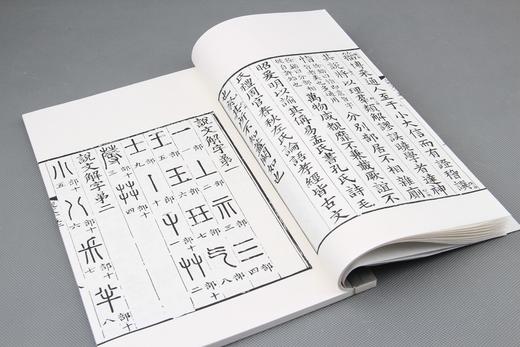 籀博采通人至于小大信而有證稽譔
其說將以理羣類解謬誤曉學者達神
恉
分別部居不相雜廁
萬物咸覩靡不兼載厥誼不
昭爰明以諭其偁易孟氏書孔氏詩毛
氏禮周官春秋左氏論語孝經皆古文
也其於所不知蓋闕如也
說文解字第一
一部一丄部二示部三三部四
王部五玉部六玨部七气部八
士部九丨部十屮部十一艸部十二
蓐部十三茻部十四
說文解字第二
小部十五八部十六釆部十七半部十八